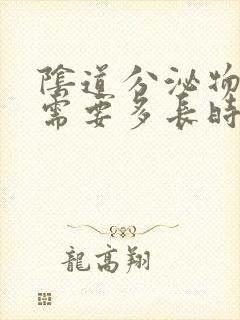 陰道分泌物
需要多長時
龍高翔